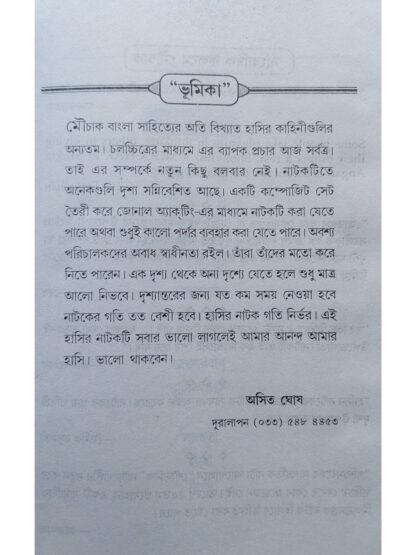 “ভূমিকা”
মৌচাক বাংলা সাহিত্যের অতি বিখ্যাত হাসির কাহিনীগুলির
অন্যতম। চলচ্চিত্রের মাধ্যমে এর ব্যাপক প্রচার আজ সর্বত্র।
তাই এর সম্পর্কে নতুন কিছু বলবার নেই। নাটকটিতে
অনেকগুলি দৃশ্য সন্নিবেশিত আছে। একটি কম্পোজিট সেট
তৈরী করে জোনাল অ্যাক্টিং-এর মাধ্যমে নাটকটি করা যেতে
পারে অথবা শুধুই কালো পর্দার ব্যবহার করা যেতে পারে। অবশ্য
পরিচালকদের অবাধ স্বাধীনতা রইল। তাঁরা তাঁদের মতো করে
নিতে পারেন। এক দৃশ্য থেকে অন্য দৃশ্যে যেতে হলে শুধু মাত্র
আলো নিভবে। দৃশ্যান্তরের জন্য যত কম সময় নেওয়া হবে
নাটকের গতি তত বেশী হবে। হাসির নাটক গতি নির্ভর। এই
হাসির নাটকটি সবার ভালো লাগলেই আমার আনন্দ আমার
হাসি। ভালো থাকবেন।
অসিত ঘোষ
দূরালাপন (০৩৩) ৫৪৮ ৪৪৫৩